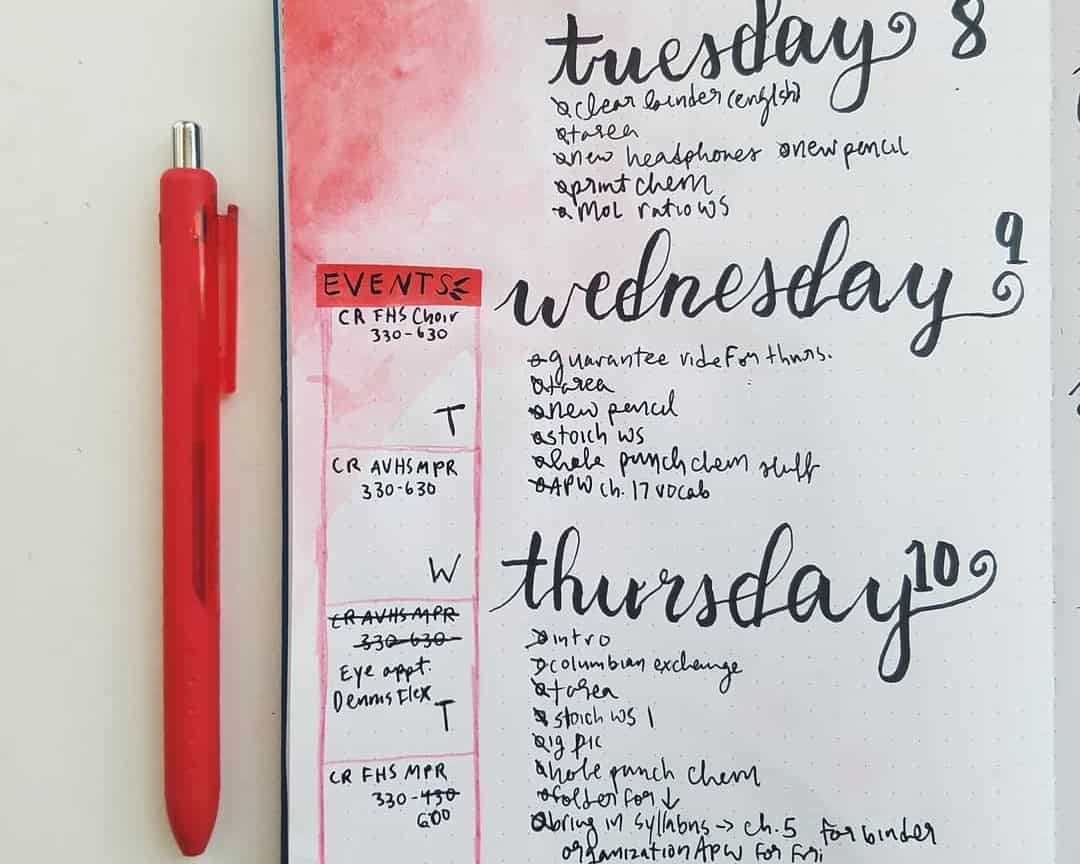 tuesday 8
clear binder (english)
tarea
new headphones new pencil
print chem
MOL ratio WS
EVENTS
CR FHS Choir
330-630
T
CR AVHS MPR
330-630
W
CR AVHS MPR
330-630
Eye appt.
Dennis Flex
T
CR FHS MPR
330-430
600
wednesday 9
guarantee ride For thurs.
tarea
new pencil
stoich WS
hole punch chem stuff
APW ch. 17 vocab
thursday 10
intro
columbian exchange
tarea
stoich WS 1
ig pic
hole punch chem
folder for ↓
bring in syllabus → ch. 5 for binder
organization APW For Fri